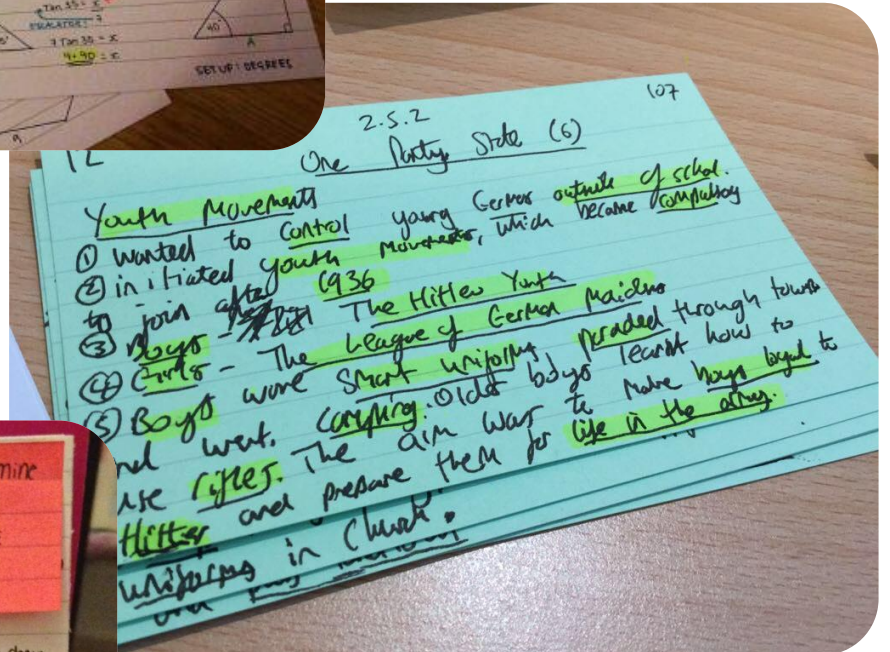 Tan 35 = x
7
ESCALATOR:
7 Tan 35 = x
4.90 = x
40°
A
SET UP: DEGREES
9
12
2.5.2
107
One Party State (6)
Youth Movements
① wanted to control young German outside of school.
② initiated youth movements, which became compulsory
to join after 1936
③ Boys - The Hitler Youth
④ Girls - The League of German Maidens
⑤ Boys wore smart uniforms paraded through towns
nd went camping. Older boys learnt how to
use rifles. The aim was to make boys loyal to
Hitler and prepare them for life in the army.
uniforms in Church.
and
mine